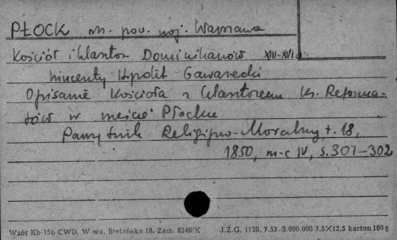 PŁOCK m. pow. woj. Warszawa
Kościół i klasztor Dominikanów XIII-XVI
Wincenty Hipolit Gawarecki
Opisanie kościoła z klasztorem ks. Reforma-
tów w mieście Płocku
Pamiętnik Religijno-Moralny t. 18,
1850, m-c IV, s. 301-302
Wzór Kb-15b CWD. W-wa, Bielańska 18. Zam. J.Z.G. 1120. 7.53. 2.000.000 7,5X12,5 karton 180 g